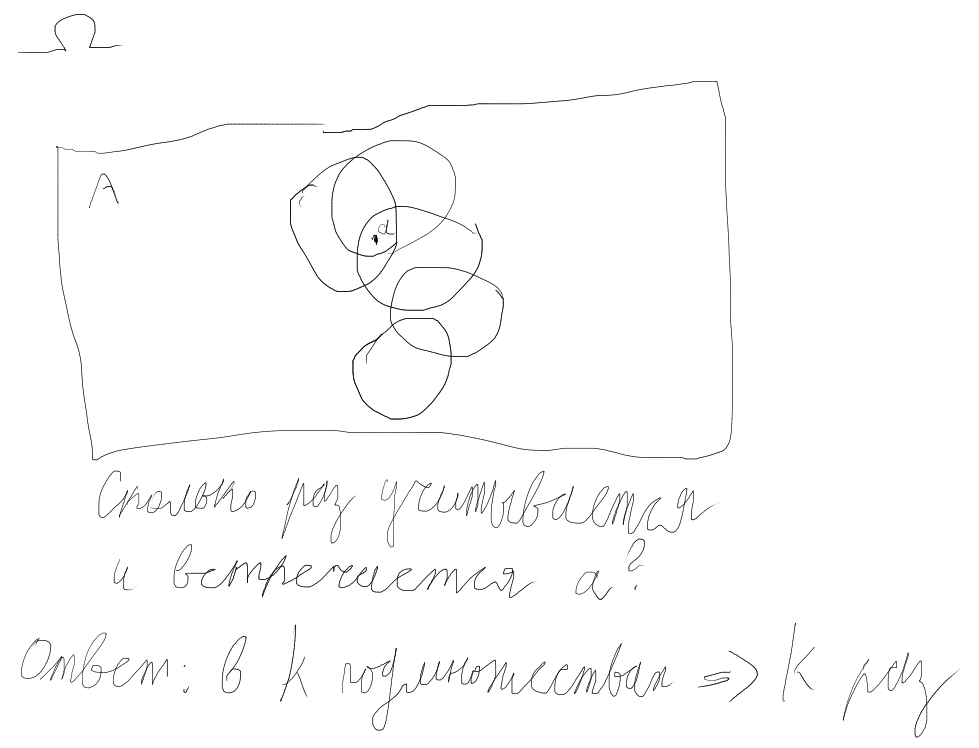 Ω
A
a
Сколько раз учитывается
и встречается a?
Ответ: в k подмножествах => k раз